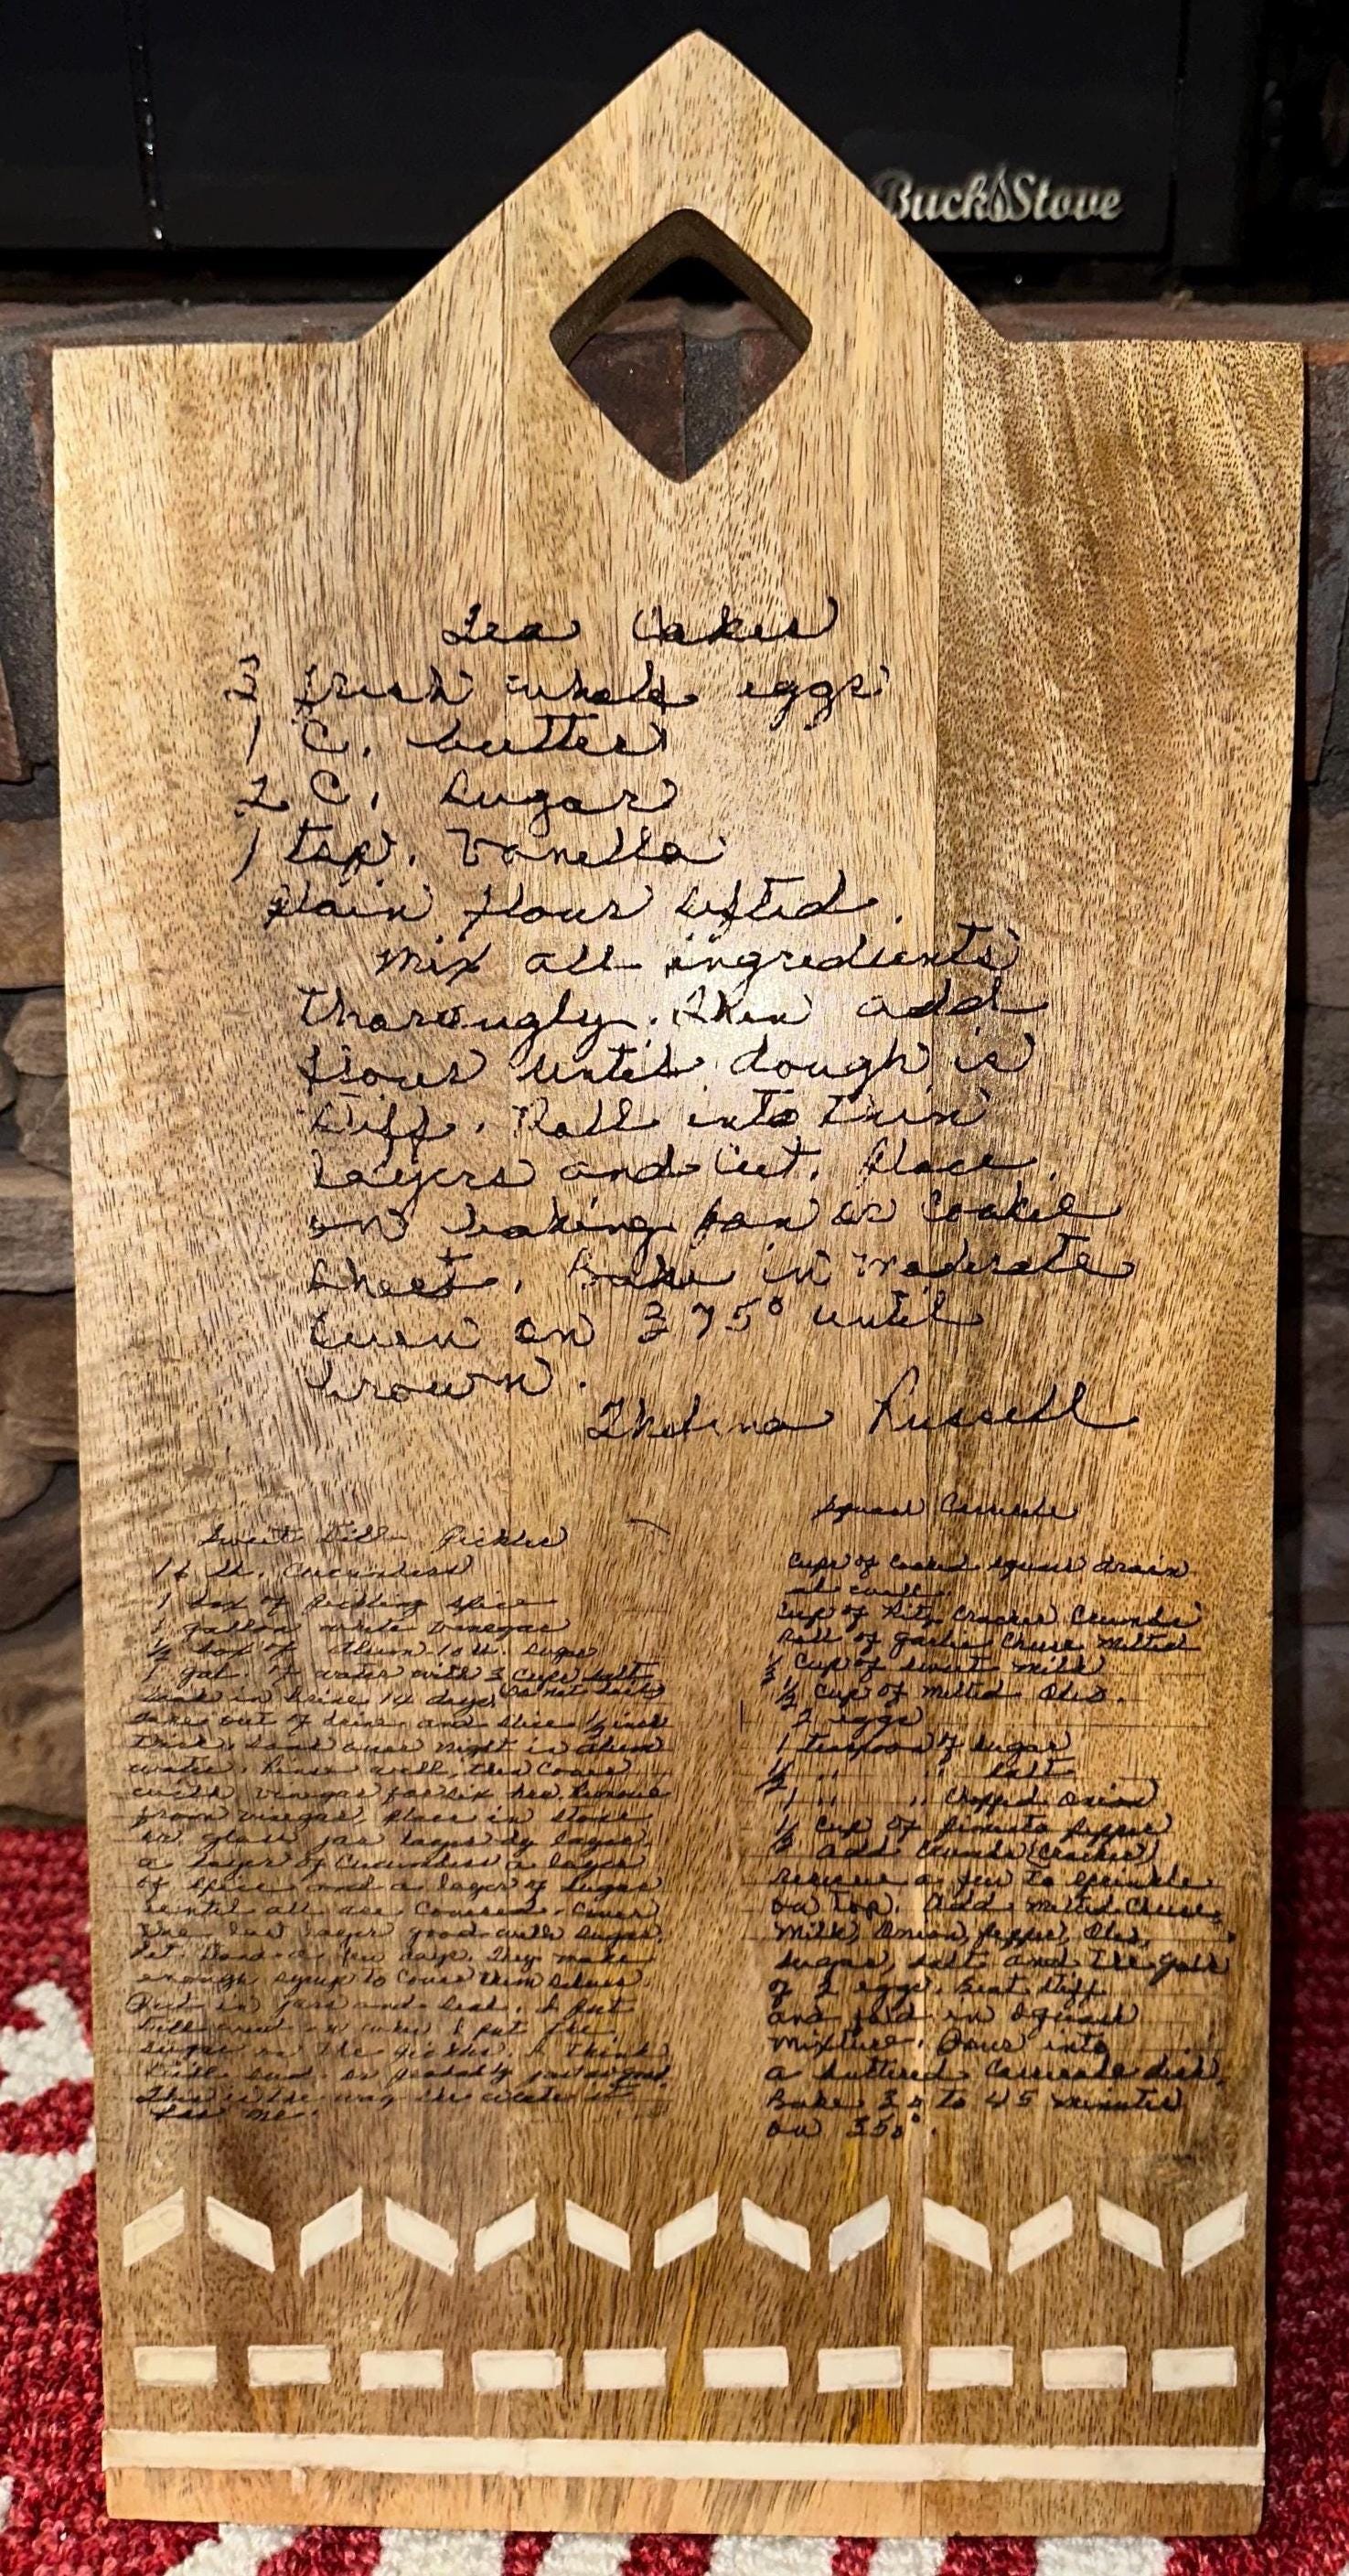 BuckStove
Tea Cakes
3 fresh whole eggs
1 C. butter
2 C. sugar
1 tsp. Vanella
plain flour sifted.
mix all ingredients
thorougly. Then add
flour until dough is
stiff. Roll into thin
layers and cut. Place
on baking pan or cookie
sheet. Bake in moderate
oven on 375° until
brown.
Thelma Russell
Sweet Dill Pickles
16 lb. Cucumbers
1 box of pickling spice
1 gallon white vinegar
1/2 box of Alum 10 lb. sugar
1 gal. of water with 3 cups salt
soak in brine 14 days (Do not boil)
take out of brine and slice 1/2 inch
thick, soak over night in alum
water. Rinse well, then cover
with vinegar for six hrs. Remove
from vinegar, place in stone
or glass jar layer by layer
a layer of cucumbers a layer
of spice and a layer of sugar
until all are covered. Cover
the last layer good with sugar.
Let stand a few days. They make
enough syrup to cover them selves.
Put in jars and seal. I put
the
sugar on the pickles. I think
probably just as good.
This is the way she wrote it
for me.
Squash Casserole
cups of cooked squash drain
well.
cup of Ritz Cracker Crumbs
Roll of garlic Cheese Melted
cup of sweet milk
1/2 cup of melted Oleo.
2 eggs
1 teaspoon of sugar
1/2 " " salt
1 " " chopped onion
cup of pimento pepper
add crumbs (cracker)
reserve a few to sprinkle
on top. Add melted cheese,
milk, onion, pepper, Oleo,
sugar, salt and the yolk
of 2 eggs. Beat stiff
and fold in squash
mixture. Pour into
a buttered casserole dish.
Bake 30 to 45 minutes
on 350°.